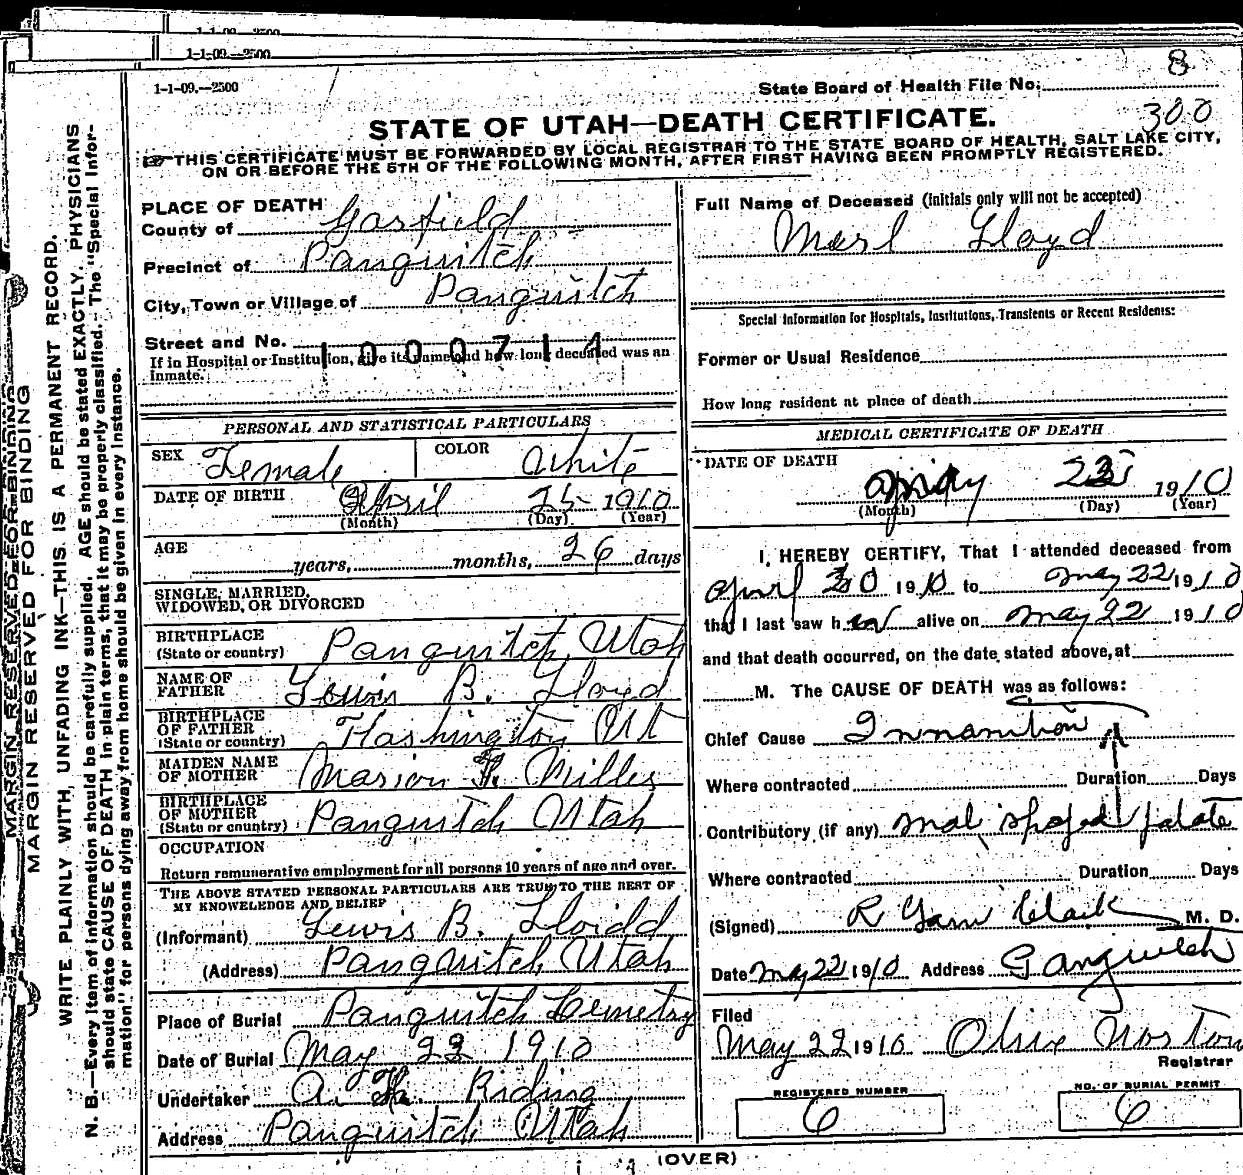 1-1-09.—2500
1-1-09.—2500
8
1-1-09.—2500
State Board of Health File No.
300
STATE OF UTAH—DEATH CERTIFICATE.
THIS CERTIFICATE MUST BE FORWARDED BY LOCAL REGISTRAR TO THE STATE BOARD OF HEALTH, SALT LAKE CITY,
ON OR BEFORE THE 5TH OF THE FOLLOWING MONTH, AFTER FIRST HAVING BEEN PROMPTLY REGISTERED.
MARGIN RESERVED FOR BINDING
MARGIN RESERVED FOR BINDING
WRITE PLAINLY WITH, UNFADING INK—THIS IS A PERMANENT RECORD.
N. B.—Every item of information should be carefully supplied. AGE should be stated EXACTLY. PHYSICIANS
should state CAUSE OF DEATH in plain terms, that it may be properly classified. The "Special Infor-
mation" for persons dying away from home should be given in every instance.
PLACE OF DEATH
County of Garfield
Precinct of Panguitch
City, Town or Village of Panguitch
Street and No.
1000714
If in Hospital or Institution, give its name and how long deceased was an
inmate.
PERSONAL AND STATISTICAL PARTICULARS
SEX Female COLOR White
DATE OF BIRTH April 25 1910
(Month) (Day) (Year)
AGE years, months, 26 days
SINGLE, MARRIED,
WIDOWED, OR DIVORCED
BIRTHPLACE
(State or country) Panguitch, Utah
NAME OF
FATHER Lewis B. Lloyd
BIRTHPLACE
OF FATHER
(State or country) Washington Ut
MAIDEN NAME
OF MOTHER Marion Miller
BIRTHPLACE
OF MOTHER
(State or country) Panguitch Utah
OCCUPATION
Return remunerative employment for all persons 10 years of age and over.
THE ABOVE STATED PERSONAL PARTICULARS ARE TRUE TO THE BEST OF
MY KNOWELEDGE AND BELIEF
(Informant) Lewis B. Lloidd
(Address) Panguitch Utah
Place of Burial Panguitch Cemetry
Date of Burial May 23 1910
Undertaker A. Riding
Address Panguitch Utah
Full Name of Deceased (Initials only will not be accepted)
Merl Lloyd
Special Information for Hospitals, Institutions, Transients or Recent Residents:
Former or Usual Residence
How long resident at place of death
MEDICAL CERTIFICATE OF DEATH
DATE OF DEATH
1910
(Month) (Day) (Year)
I HEREBY CERTIFY, That I attended deceased from
April 30 1910 to May 22 1910
that I last saw her alive on May 22 1910
and that death occurred, on the date stated above, at
M. The CAUSE OF DEATH was as follows:
Chief Cause Innanition
Where contracted Duration Days
Contributory (if any) mal shaped palate
Where contracted Duration Days
(Signed) R Garn Clark M. D.
Date May 22 1910 Address Panguitch
Filed
May 22 1910 Olive Norton
Registrar
REGISTERED NUMBER
6
NO. OF BURIAL PERMIT
6
(OVER)